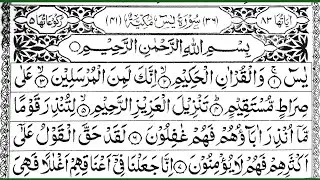 اٰیَاتُهَا ٨٣ (٣٦) سُوْرَةُ يٰسٓ مَكِّيَّةٌ (٤١) رُكُوْعَاتُهَا ٥
بِسْمِ اللّٰهِ الرَّحْمٰنِ الرَّحِيْمِ
يٰسٓ ۝١ وَالْقُرْاٰنِ الْحَكِيْمِ ۝٢ اِنَّكَ لَمِنَ الْمُرْسَلِيْنَ ۝٣ عَلٰى
صِرَاطٍ مُّسْتَقِيْمٍ ۝٤ تَنْزِيْلَ الْعَزِيْزِ الرَّحِيْمِ ۝٥ لِتُنْذِرَ قَوْمًا
مَّاۤ اُنْذِرَ اٰبَآؤُهُمْ فَهُمْ غٰفِلُوْنَ ۝٦ لَقَدْ حَقَّ الْقَوْلُ عَلٰۤى
اَكْثَرِهِمْ فَهُمْ لَا يُؤْمِنُوْنَ ۝٧ اِنَّا جَعَلْنَا فِيْۤ اَعْنَاقِهِمْ اَغْلٰلًا فَهِيَ